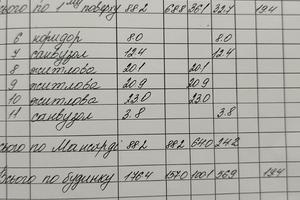 ього по 1му поверху 88.2 68.8 36.1 32.7 19.4
6 коридор 8.0 8.0
7 санвузол 12.4 12.4
8 житлова 20.1 20.1
9 житлова 20.9 20.9
10 житлова 23.0 23.0
11 санвузол 3.8 3.8
ього по Мансарді 88.2 88.2 64.0 24.2
Всього по будинку 176.4 157.0 100.1 56.9 19.4